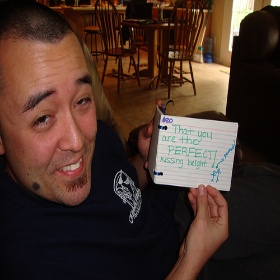 That you
are the
PERFECT
kissing height